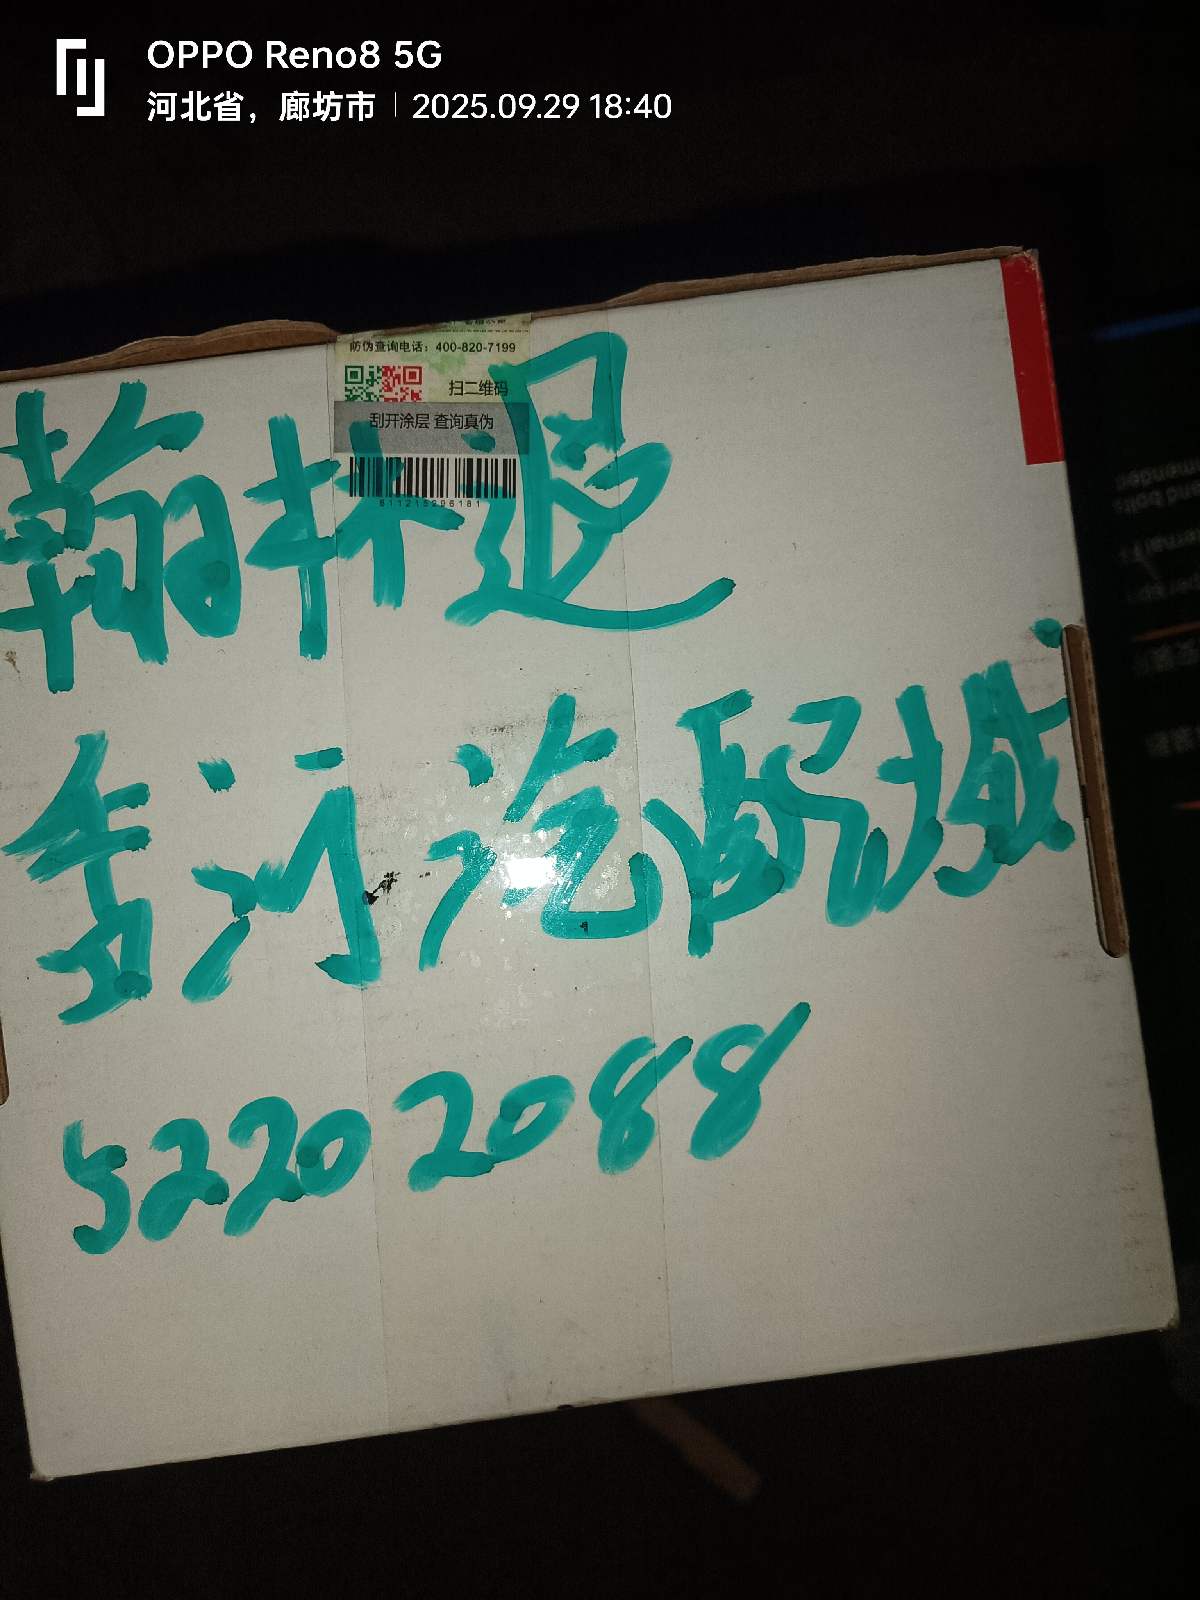 OPPO Reno8 5G
河北省，廊坊市 | 2025.09.29 18:40
防伪查询电话：400-820-7199
扫二维码
刮开涂层 查询真伪
翰林退
金河汽配城
5220 2088